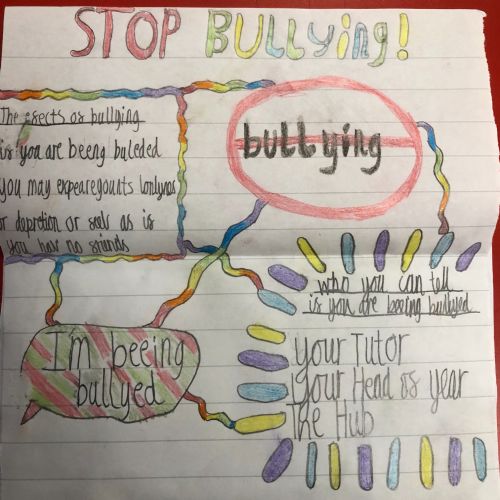 STOP BULLying!
The esects os bullying
is you are beeng buleded
you may expearegounts lonlynos
or depretion or seels as is
you have no sriends
bullying
who you can tell
is you are beeing bullyed
Your Tutor
your Head os year
The Hub
I'm beeing
bullyed